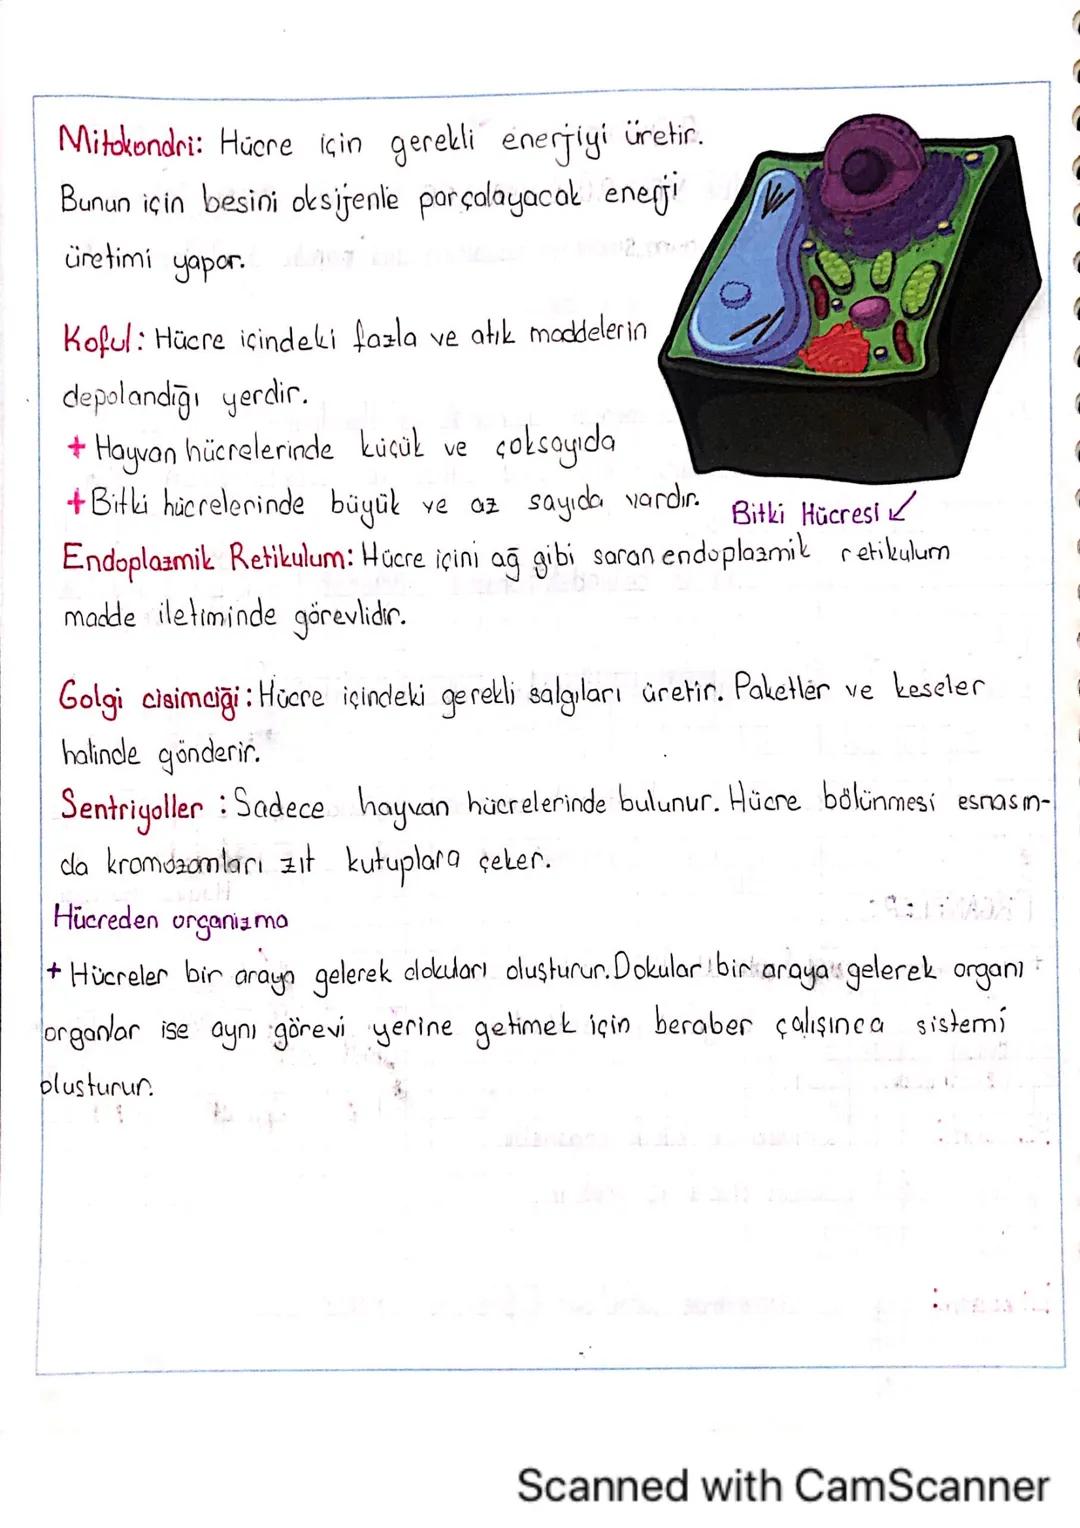 Mitokondri: Hücre için gerekli enerjiyi üretir.
Bunun için besini oksijenle parçalayacak enerji
üretimi yapar.
Koful: Hücre içindeki fazla ve atık maddelerin
depolandığı yerdir.
+ Hayvan hücrelerinde küçük ve çoksayıda
+ Bitki hücrelerinde büyük ve az sayıda vardır.
Bitki Hücresi ↙
Endoplazmik Retikulum: Hücre içini ağ gibi saran endoplazmik retikulum
madde iletiminde görevlidir.
Golgi cisimciği: Hücre içindeki gerekli salgıları üretir. Paketler ve keseler
halinde gönderir.
Sentriyoller : Sadece hayvan hücrelerinde bulunur. Hücre bölünmesi esnasın-
da kromozomları zıt kutuplara çeker.
Hücreden organizma
+ Hücreler bir araya gelerek dokuları oluşturur. Dokular bir araya gelerek organı
organlar ise aynı görevi yerine getimek için beraber çalışınca sistemi
oluşturur.
Scanned with CamScanner